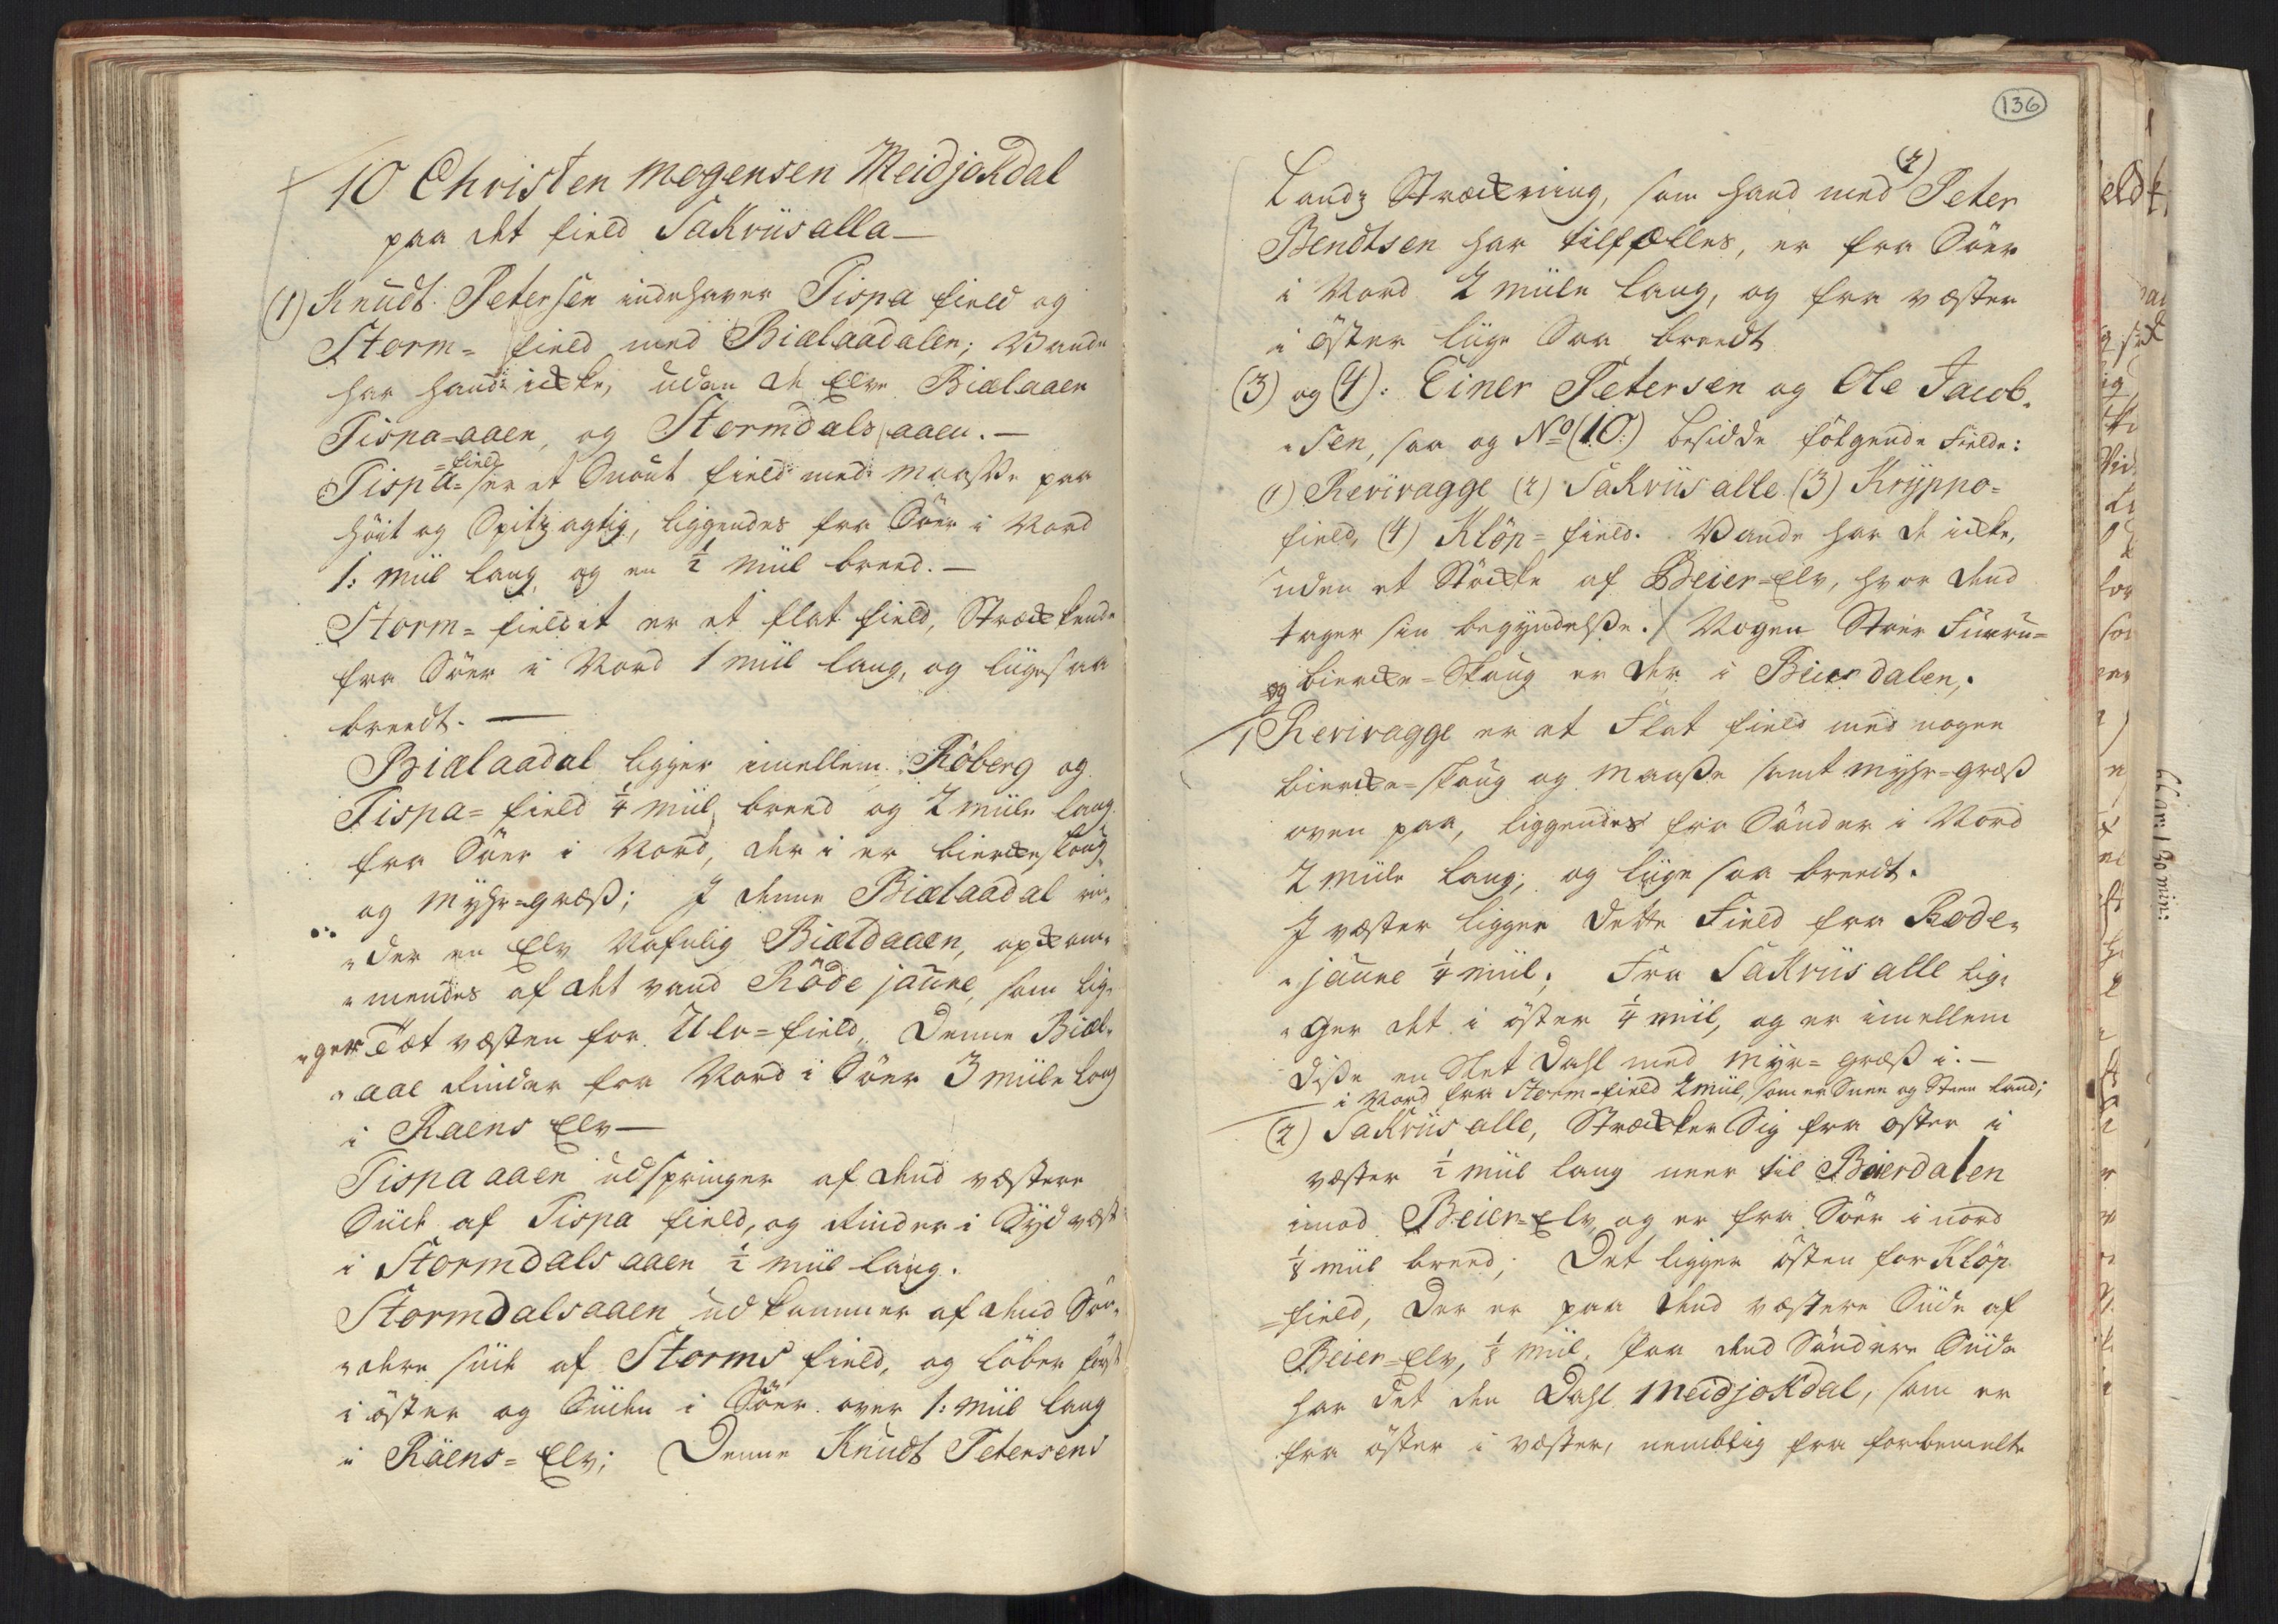 10 Christen Mogensen Meidjokdal
paa det field Sakriisalla —
(1) Knudt Petersen indehaver Tispa field og
Storm= field med Bialaadalen; Vande
har hand icke, uden de Elve Bialaaen
Tispa=aaen, og Stormdals aaen. —
=field
Tispa= er et Snout field med Maasse paa
höit og Spitzagtig, liggendes fra Söer i Nord
1: miil lang og en ½ miil breed. —
Storm= fieldet er et flat field, Streckende
fra Söer i Nord 1 miil lang, og liige saa
breedt. —
Bialaadal ligger imellem Röberg og
Tispa= field ¼ miil breed og 2 miile lang
fra Söer i Nord, der i er biercke skoug
og Myhr=græss; I denne Bialaadal rin„
„der en Elv Nafnlig Bialdaaen, opkom„
„mendes af det vand Röde jaure, som lig„
„ger Tæt westen for Ulv=field. Denne Bial„
„aae Rinder fra Nord i Söer 3 miile lang
i Raens Elv —
Tispaaaen udspringer af dend westere
Siide af Tispa field, og Rinder i Sydwest
i Stormdals aaen ½ miil lang.
Stormdalsaaen udkommer af dend Sön„
„dere siide af Storms field, og löber först
i öster og Siiden i Söer over 1: miil lang
i Räens= Elv; Denne Knudt Petersens
136
Landz Streckning, som hand med (2) Peter
Bendtsen har tilfælles, er fra Söer
i Nord 2 miile lang, og fra wæster
i öster liige Saa breedt
(3) og (4): Einer Petersen og Ole Jacob„
„sen, saa og No (10) besidde fölgende Fielde:
(1) Reviragge (2) Sakriisalle (3) Kryppo=
field, (4) Klöp= field. Vande har de icke,
uden et Stöcke af Beier=Elv, hvor dend
tager sin begyndelsse. Nogen Stoer Fuuru=
og biercke=Skoug er der i Beierdalen,
1 Reviragge er et Flat field med nogen
biercke=skoug og Maasse samt Myhr=græss
oven paa, liggendes fra Sönder i Nord
2 miile lang, og liige saa breedt.
I wæster ligger dette Field fra Rode„
„jaure ¼ miil; Fra Sakriisalle lig„
„ger det i öster ¼ miil, og er imellem
disse en Slet Dahl med Myr= græss i. —
i Nord fra Storm=field 2 miil, som er Snee og Steen land;
(2) Sakriisalle, Strecker Sig fra öster i
wæster ½ miil lang neer til Beierdalen
imod Beier=Elv, og er fra Söer i nord
⅛ miil breed; Det ligger östen for Klöp
=field, der er paa dend wæstere Siide af
Beier=Elv, ⅛ miil. Paa dend Söndere Siide
har det den Dahl Meidjokdal, som er
fra öster i wæster, nemblig fra forbemelte